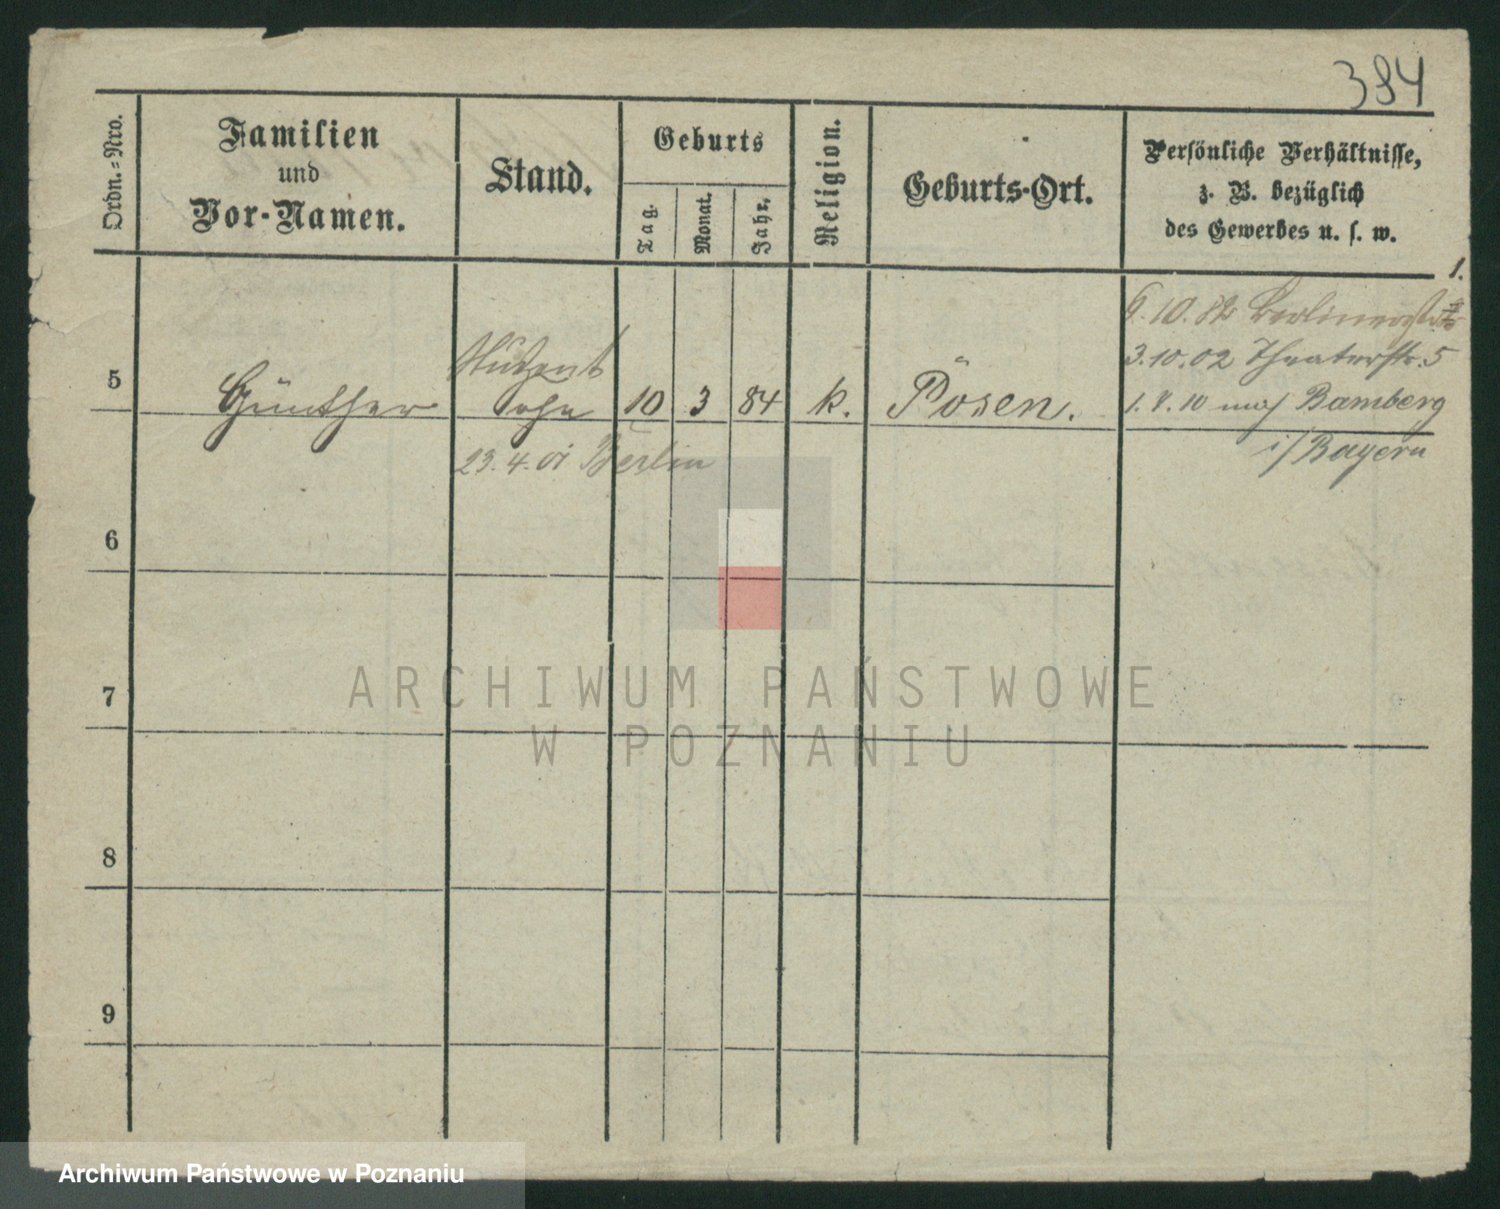 384
Ordn.-Nro.
Familien
und
Vor-Namen.
Stand.
Geburts
Tag.
Monat.
Jahr.
Religion.
Geburts-Ort.
Persönliche Verhältnisse,
z. B. bezüglich
des Gewerbes u. s. w.
1.
10.82 Berlinerstr
3.10.02 Theaterstr. 5
5 Günther Student Sohn 10 3 84 k. Posen.
10 nach Bamberg
i/Bayern
23.4.01 Berlin
6
7
8
9
ARCHIWUM PAŃSTWOWE
W POZNANIU
Archiwum Państwowe w Poznaniu